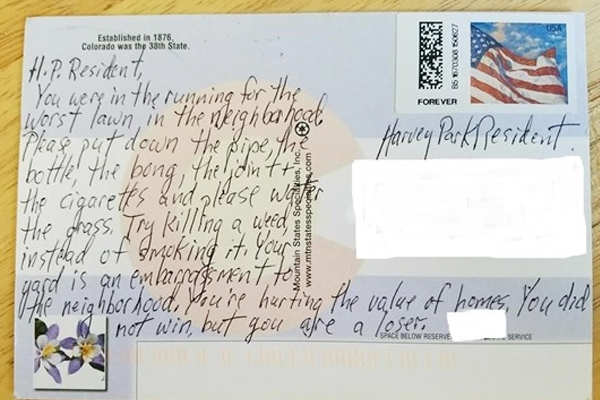 Established in 1876,
Colorado was the 38th State.
USA
FOREVER
H.P. Resident,
You were in the running for the
worst lawn, in the neighborhood.
Please put down the pipe, the
bottle, the bong, the joint +
the cigarettes and please water
the grass. Try killing a weed,
instead of smoking it. Your
yard is an embarrassment to
the neighborhood. You're hurting the value of homes. You did
not win, but you are a loser.
Harvey Park Resident.
Mountain States Specialties, Inc.
www.mtnstatesspecialties.com
SPACE BELOW RESERVE
SERVICE